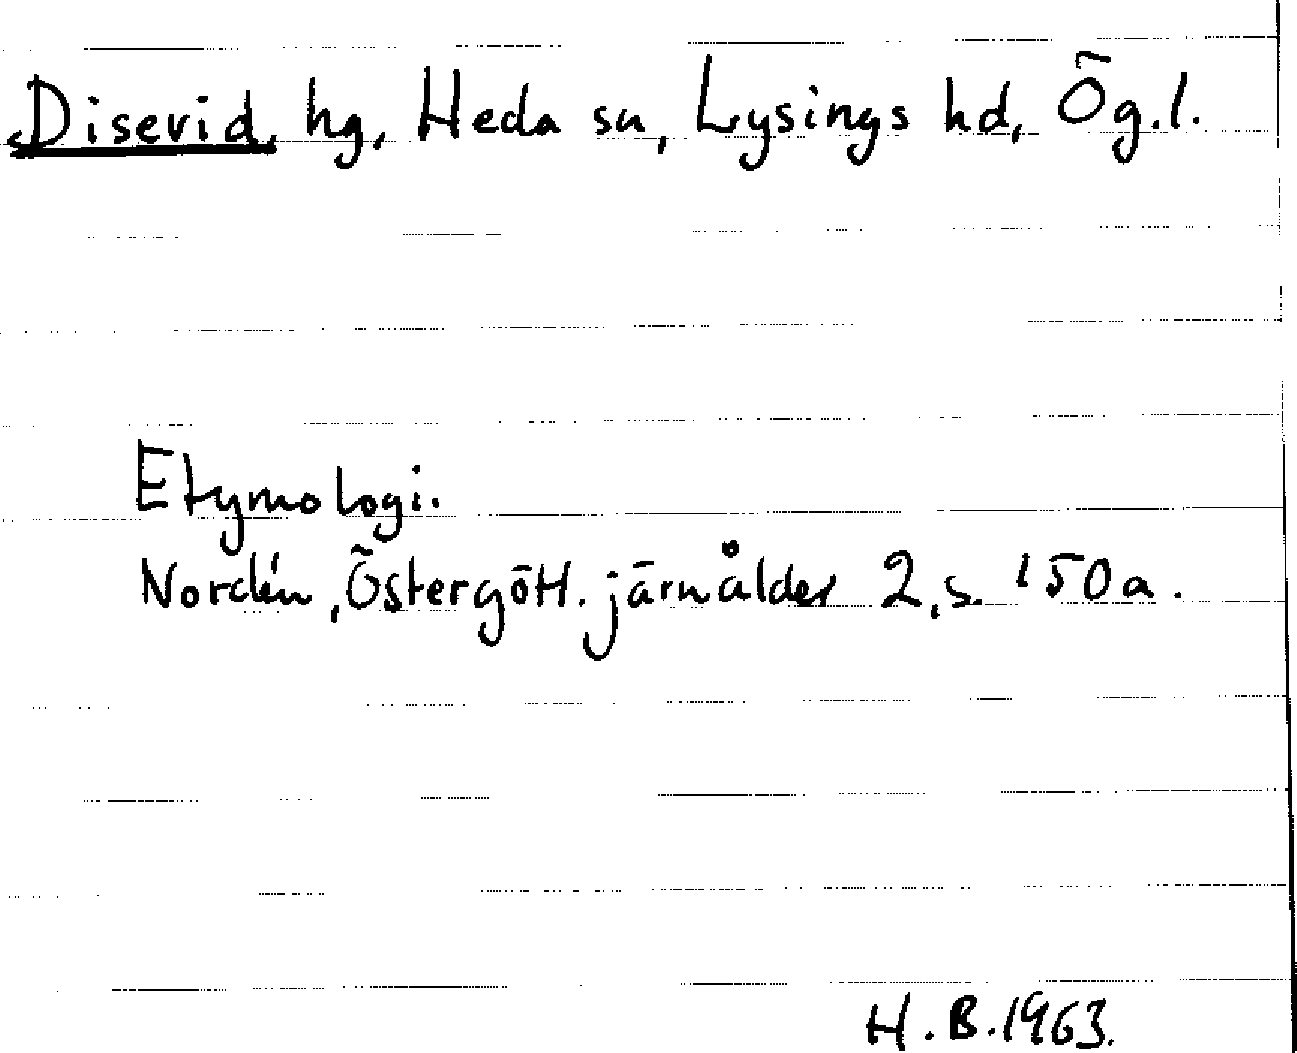 Disevid, hg, Heda sn, Lysings hd, Ög.l.
Etymologi.
Nordén, Östergött. järnålder 2, s. 150a.
H.B.1963.